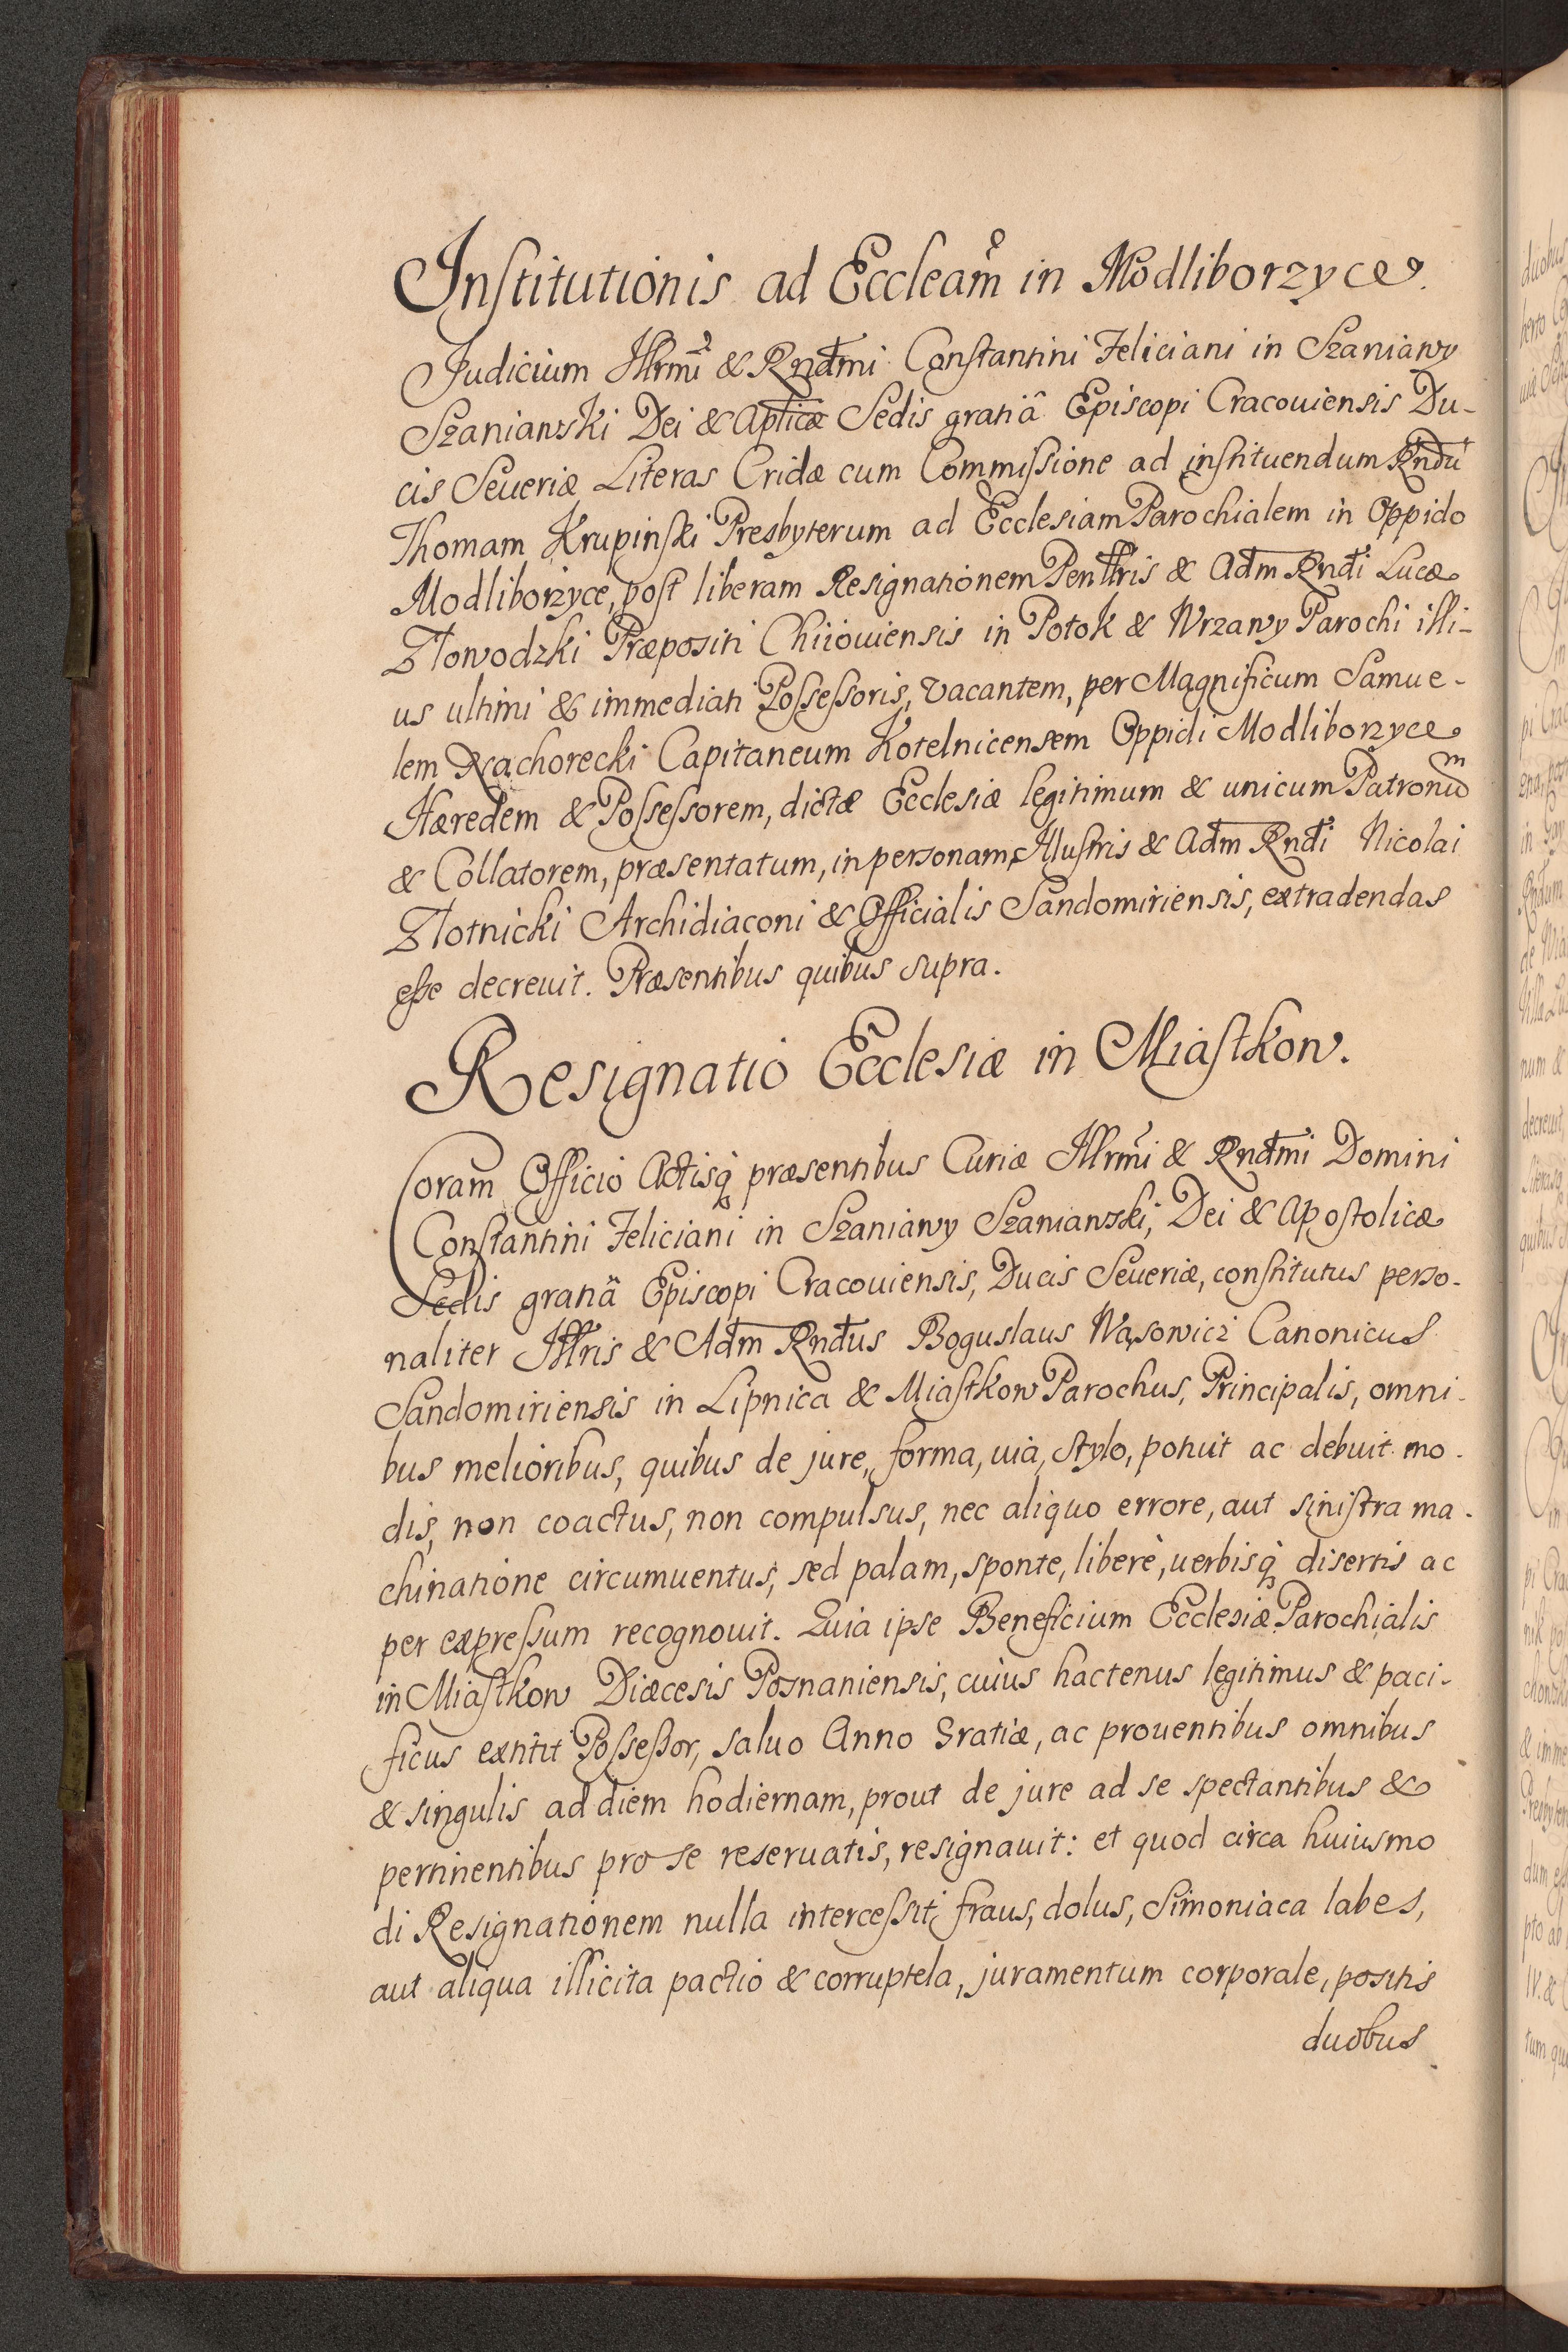 Institutionis ad Eccleam̃ in Modliborzyce.
Judicium Illrmi & Rndmi Constantini Feliciani in Szaniawy
Szaniawski Dei & Aplicæ Sedis gratiâ Episcopi Cracouiensis Du-
cis Seueriæ Literas Cridæ cum Commissione ad instituendum Rndũ
Thomam Krupinski Presbyterum ad Ecclesiam Parochialem in Oppido
Modliborzyce, post liberam Resignationem Penllris & Adm Rndi Lucæ
Złowodzki Præpositi Chiiouiensis in Potok & Wrzawy Parochi illi-
us ultimi & immediati Possessoris, vacantem, per Magnificum Samue-
lem Rachorecki Capitaneum Kotelnicensem Oppidi Modliborzyce
Hæredem & Possessorem, dictæ Ecclesiæ legitimum & unicum Patronum
& Collatorem, præsentatum, in personam Illustris & Adm Rndi Nicolai
Złotnicki Archidiaconi & Officialis Sandomiriensis, extradendas
esse decreuit. Præsentibus quibus supra.
Resignatio Ecclesiæ in Miastkow.
Coram Officio Actisq́ præsentibus Curiæ Illrmi & Rndmi Domini
Constantini Feliciani in Szaniawy Szaniawski, Dei & Apostolicæ
Sedis gratiâ Episcopi Cracouiensis, Ducis Seueriæ, constitutus perso-
naliter Illris & Adm Rndus Boguslaus Wąsowicz Canonicus
Sandomiriensis in Lipnica & Miastkow Parochus, Principalis, omni-
bus melioribus, quibus de jure, forma, uia, stylo, potuit ac debuit mo-
dis, non coactus, non compulsus, nec aliquo errore, aut sinistra ma-
chinatione circumuentus, sed palam, sponte, liberè, uerbisq́ disertis ac
per expressum recognouit. Quia ipse Beneficium Ecclesiæ Parochialis
in Miastkow Diæcesis Posnaniensis, cuius hactenus legitimus & paci-
ficus extitit Possessor, saluo Anno Gratiæ, ac prouentibus omnibus
& singulis ad diem hodiernam, prout de jure ad se spectantibus &
pertinentibus pro se reseruatis, resignauit: et quod circa huiusmo
di Resignationem nulla intercessit fraus, dolus, Simoniaca labes,
aut aliqua illicita pactio & corruptela, juramentum corporale, positis
duobus